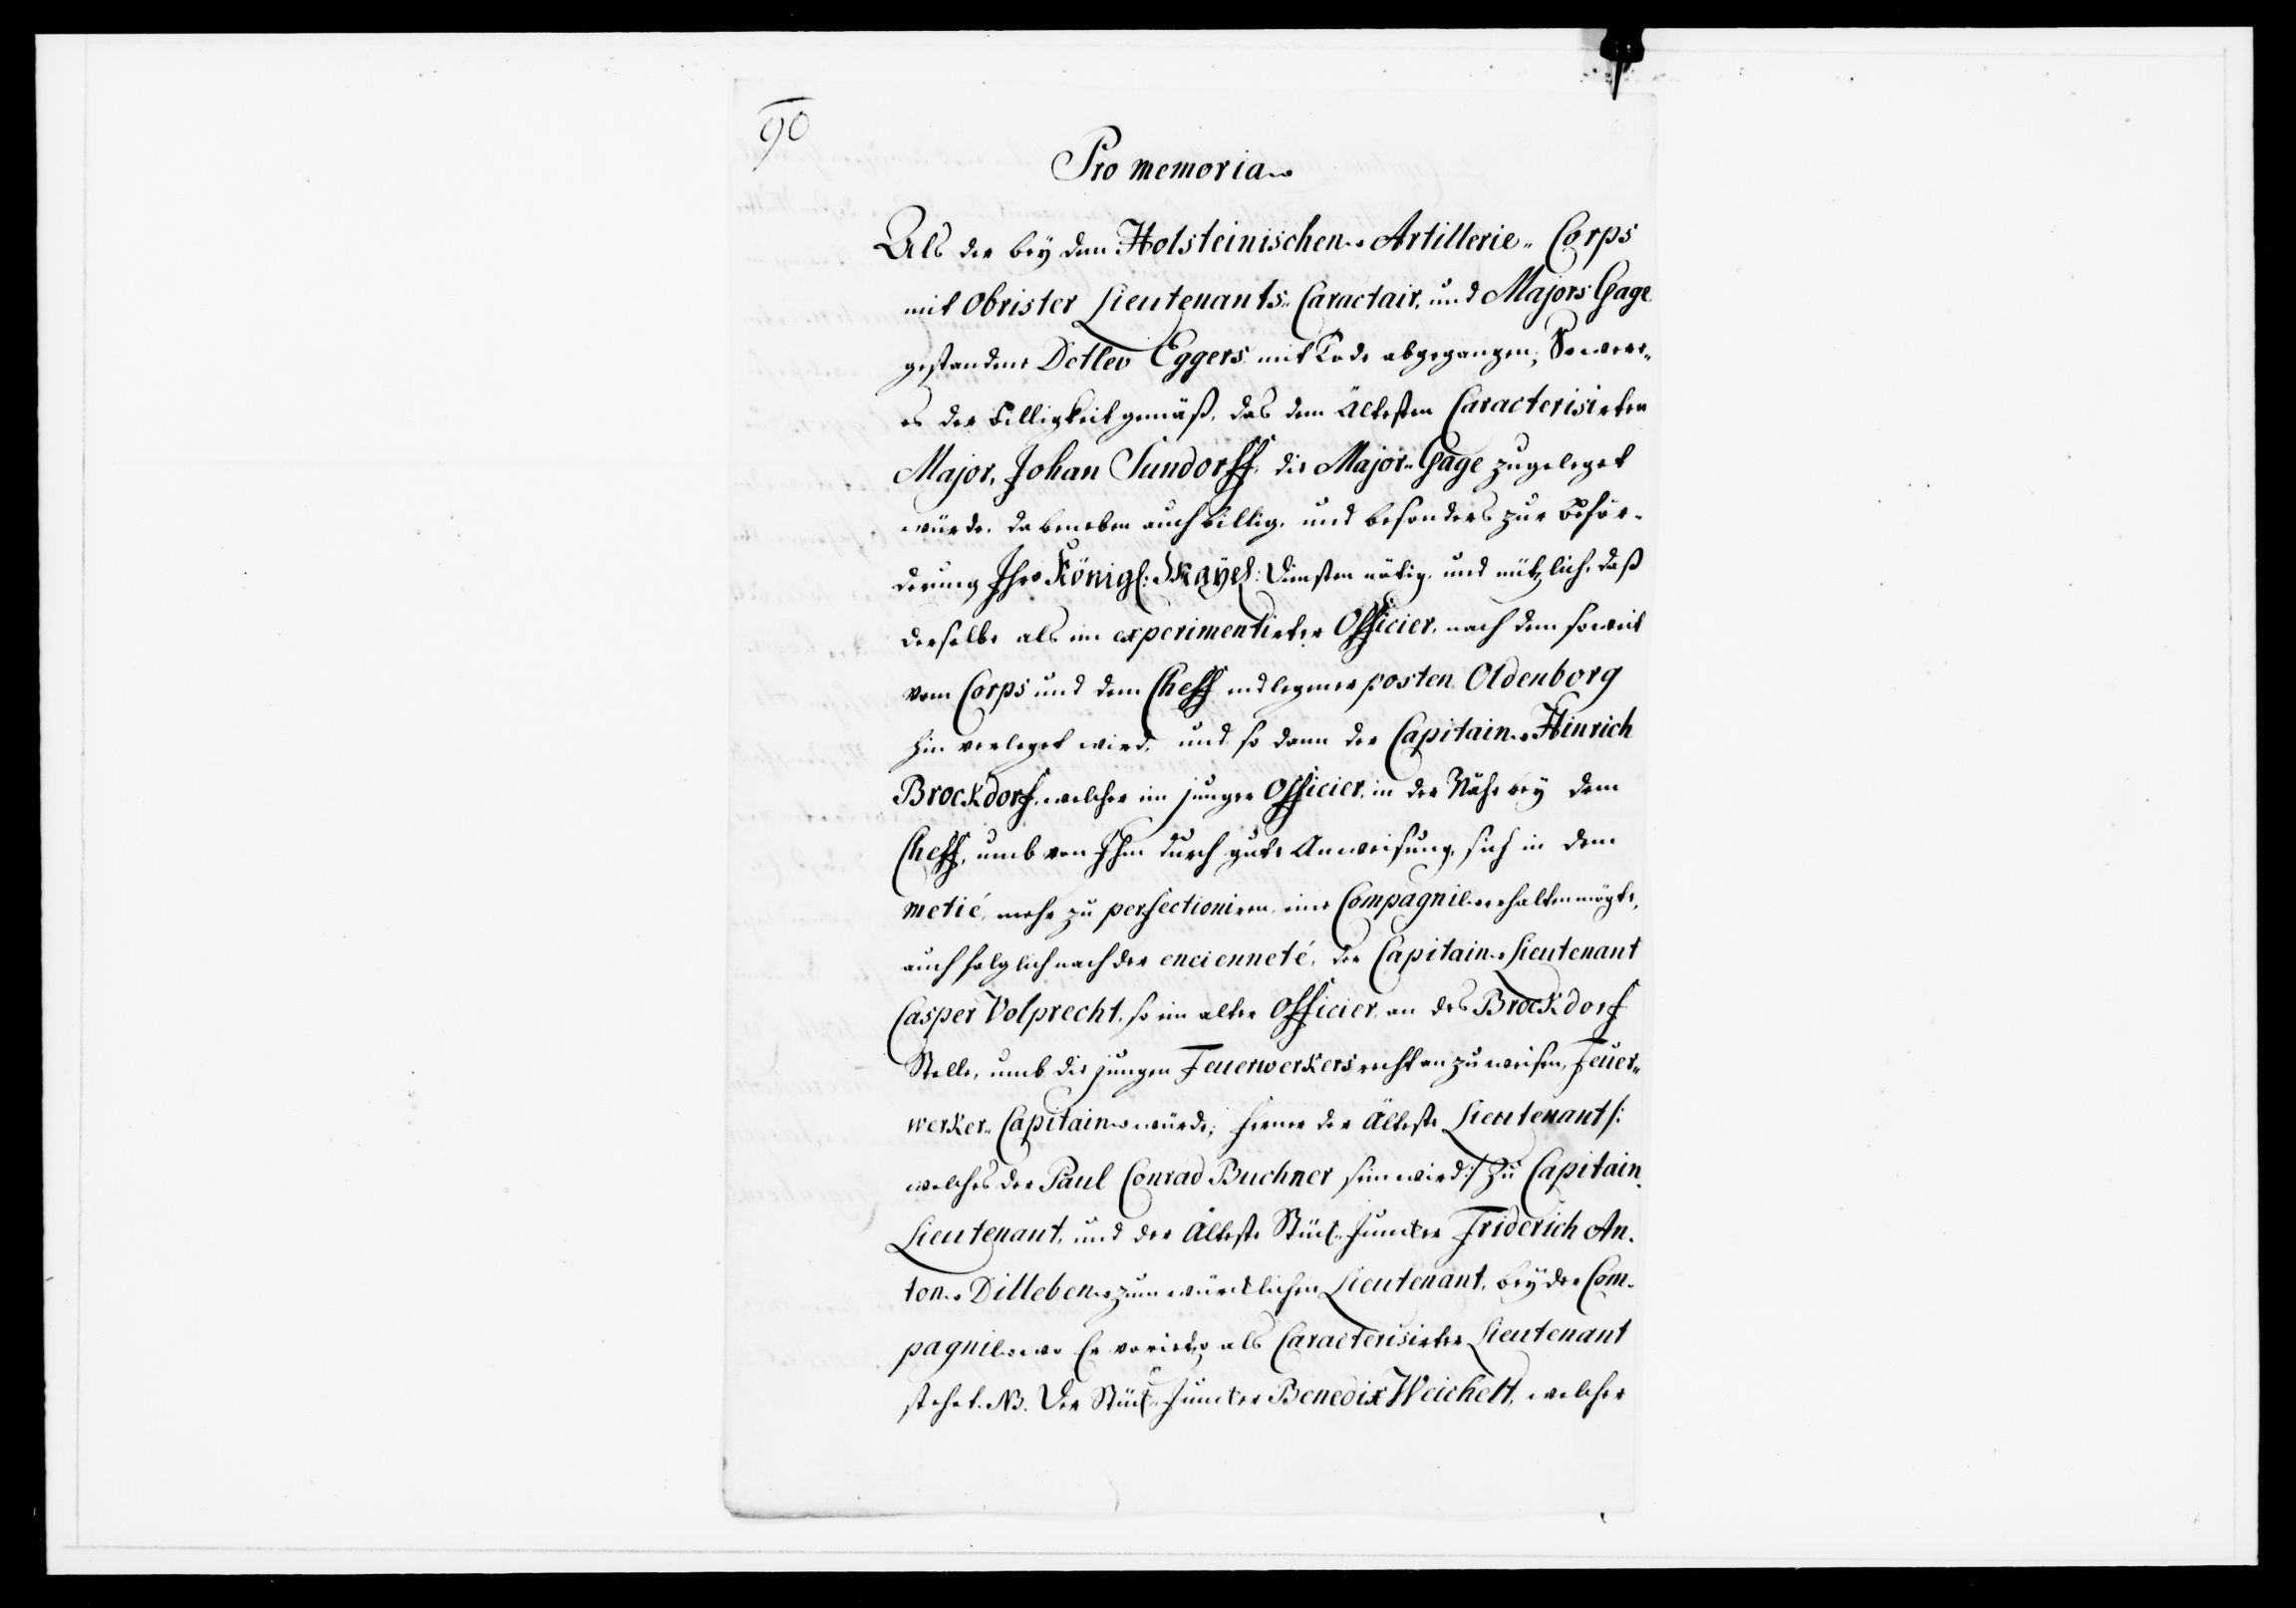 90
Pro memoria
Als der bey dem Holsteinischen Artillerie- Corps
mit Obrister Lieutenants- Caractair, und Majors Gage
gestandene Detlev Eggers mit Tode abgegangen; So were
es der Billigkeit gemäß, das dem Ältesten Caracterisirten
Major, Johan Sundorff, die Major-Gage zugeleget
würde, da beneben auch billig, und besonders zur Beför-
derung Ihro Königl: Mayel: Diensten nötig, und nützlich, daß
derselbe als ein experimentirter Officier, nach dem soweit
vom Corps und dem Cheff endlegenen posten Oldenborg
hin verleget wird, und so dann der Capitain Hinrich
Brockdorf, welcher ein junger Officier, in der Nähe bey dem
Cheff, umb von Ihm durch gute Anweisung, sich in dem
metié, mehr zu perfectioniren, eine Compagnie erhalten mögte,
auch folglich nach der encienneté, der Capitain Lieutenant
Casper Volprecht, so ein alter Officier, an des Brockdorf
Stelle, umb die jungen Feuerwerkers recht an zu weisen, Feuer-
werker- Capitain würde; ferner der Älteste Lieutenant /:
welches der Paul Conrad Buchner sein wird :/ zu Capitain
Lieutenant, und der Älteste Stück-Juncker Friderich An-
ton Dilleben zum würcklichen Lieutenant, bey der Com-
pagnie wo Er vorietzo als Caracterisirter Lieutenant
stehet. NB. Der Stück-Juncker Benedix Weichelt, welcher